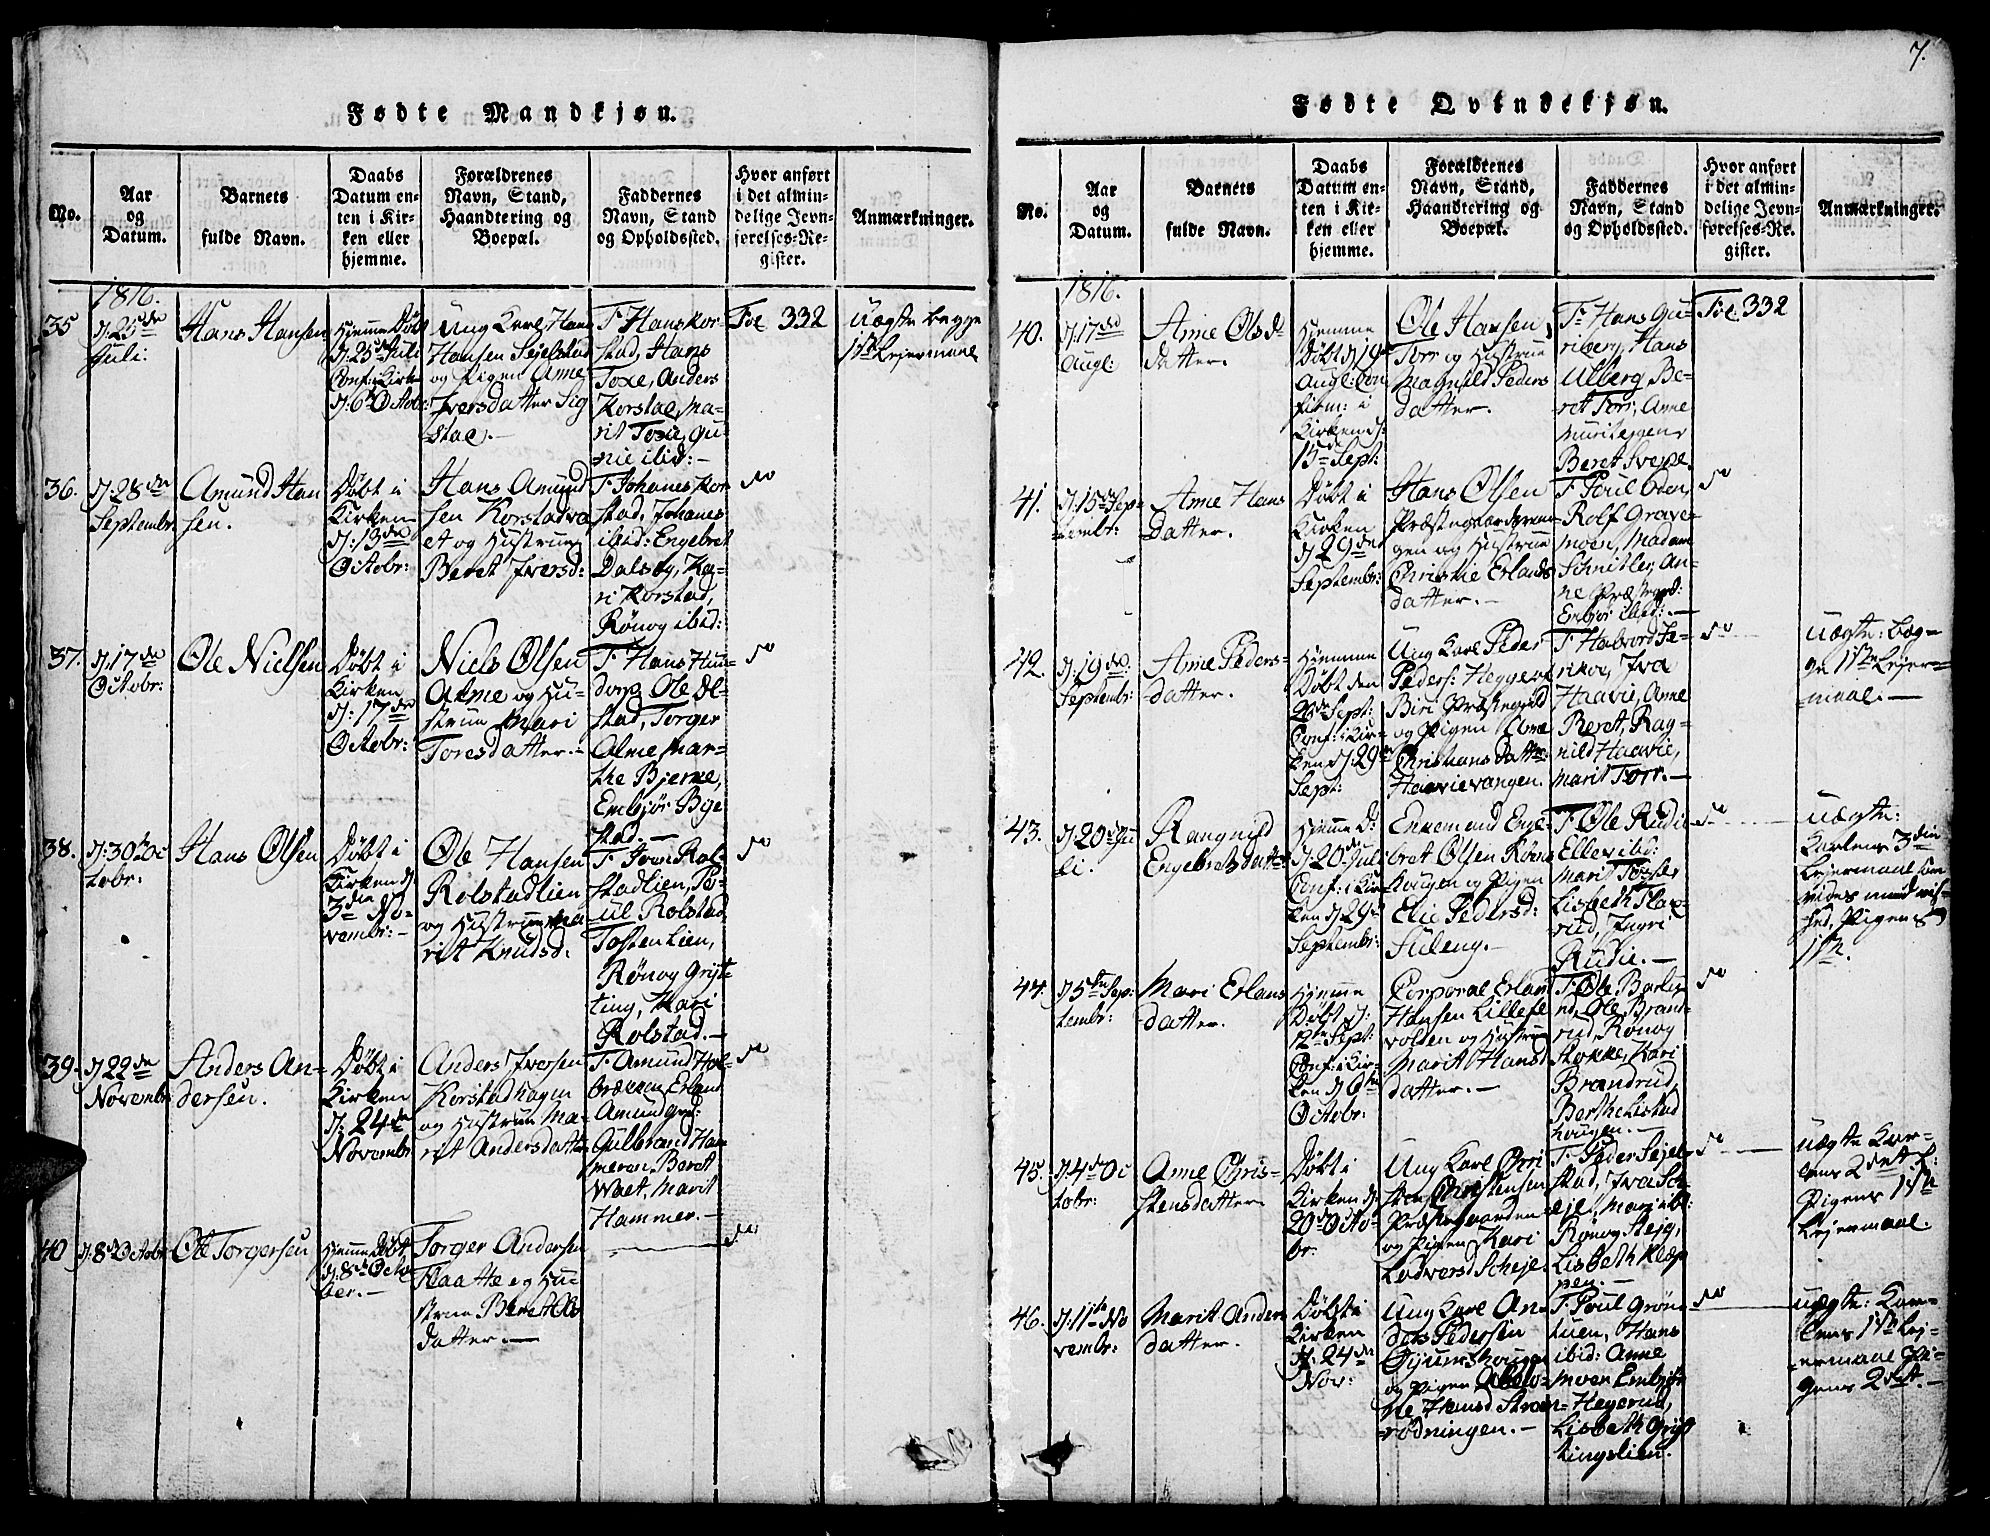 7.
Fødte Mandkjøn.
No.
Aar
og
Datum.
Barnets
fulde Navn.
Daabs
Datum en-
ten i Kir-
ken eller
hjemme.
Forældrenes
Navn, Stand,
Haandtering og
Boepæl.
Faddernes
Navn, Stand
og Opholdssted.
Hvor anført
i det almin-
delige Jevn-
førelses-Re-
gister.
Anmærkninger.
1816.
35
d. 25de
Juli:
Hans Hansen
Hjemme Døbt
d. 25de Juli
Conf: i Kirk
d: 6te Octobr:
Ung Karl Hans
Hansen Sejelstad
og Pigen Anne
Iversdatter Sig
stad.-
F. Hans Kor-
stad, Hans
Toxe, Anders
Korstad, Ma-
rit Toxe, Gu-
nie ibid:-
Fol 332
Uægte begge
1ste Lejermaal
36.
d: 28de
Septembr.
Amund Han
sen.
Døbt i
Kirken
d: 13de
Octobr:
Hans Amund
sen Korstadva
et og Hustrue
Beret Iversd:
F. Johanes Kor
stad, Johanes
ibid: Engebret
Dalsby, Ka-
ri Korstad,
Rønog ibid:
do
37.
d. 17de
Octobr:
Ole Nielsen
Døbt i
Kirken
d: 17de
Octobr:
Niels Olsen
Alme og Hu-
strue Mari
Toresdatter.-
F. Hans Hun-
dorp, Ole Ol-
stad, Torger
Alme, Mar-
the Bjerne,
Embjør Byge
stad:-
do
38.
d: 30te Oc
tobr:
Hans Olsen
Døbt i
Kirken d
3die No-
vembr:-
Ole Hansen
Rolstadlien
og Hustrue Ma
rit Knudsd:
F. Iver Rol-
stadlien, Po-
ul Rolstad
Tosten Lien,
Rønog Gryt-
ting, Kari
Rolstad.-
do
39.
d 22de
Novembr
Anders An-
dersen.
Døbt i
Kirken
d: 24de
Novembr
Anders Iversen
Korstadhagen
og Hustrue Ma-
rit Andersdatter
F. Amund Hol-
bræcken, Erland
Amundgrd:
Gulbrand Ham
meren, Beret
Waet, Marit
Hammer.-
do
40
d. 8de Octobr
Ole Torgersen
Hjemme Døbt
d. 8de Octo
ber.-
Torger Andersen
Flaatte og Hu-
strue Beret Ols
datter.-
do
Fødte Qvindekjøn.
No.
Aar
og
Datum.
Barnets
fulde Navn.
Daabs
Datum en-
ten i Kir-
ken eller
hjemme.
Forældrenes
Navn, Stand,
Haandtering og
Boepæl.
Faddernes
Navn, Stand
og Opholdssted.
Hvor anført
i det almin-
delige Jevn-
førelses-Re-
gister.
Anmærkninger.
1816.
40.
d: 17de
Augl:
Anne Ols-
datter.
Hjemme
Døbt d 19de
Augl: Con
firm: i
Kirken d:
15de Sept:
Ole Hansen
Torr og Hustrue
Magnild Peders
datter.
F. Hans Gu-
riberg, Hans
Ulberg Be-
ret Torr, Anne
Beret Svepe.
Fol. 332
41.
d: 15de Sep-
tembr:
Anne Hans
datter.
Døbt i
Kirken
d 29de
Septembr:
Hans Olsen
Præstegaardsvan
gen og Hustrue
Christie Erlands
datter.-
F. Poul Oden,
Rolf Grave-
moen, Madam
Schnitler, An-
ne Præstegrd:
Enbjør ibid:-
do
42.
d. 19de
Septembr:
Anne Peders-
datter.
Hjemme
Døbt den
Sept:
Conf: i Kir-
ken d: 29de
Sept:
Ung Karl Peder
Peders: Heggers
Biri Præstegield
og Pigen Anne
Christiansdatter
Haavievangen.
F. Halvord
Iva
Haavie, Anne
Beret, Rag-
nild Haavie,
Marit Torr.-
do
Uægte: beg-
ge 1ste Lejer-
maal.-
43.
d: 20de Ju
li.
Rangnild
Engebretsdatter
Hjemme D:
d 20de Juli
Conf: i Kir
ken d 29de
Septembr:
Enkemand Enge-
bret Olsen Røine
hougen og Pigen
Elie Pedersd:
Fuleng.-
F. Ole Rudie
Ellev ibid:
Marit
Lisbeth Flax-
rud, Ingri
Rudie.-
do
Uægte:
Karlens 3die
Lejermaal som
vides med vis-
hed, Pigens
1ste.
44.
d 5te Sep:
tembr:
Mari Erlans
datter.
Hjemme
Døbt d:
12te Sept:
Conf: i Kir-
ken d 6te
Octobr:
Corporal Erland
Hansen Lillefæ
volden og Hustrue
Marit Hansd
datter.-
F. Ole
Ole Brand-
rud, Rønog
Stokke, Kari
Brandrud,
Berthe Listad
hougen.-
do
45.
d: 4de Oc
tobr:
Anne Chris-
tensdatter
Døbt i
Kirken d:
20de Octo-
br.
Ung Karl Chri
sten Christensen
Præstegaarden
og Pigen Kari
Ledversd Scheje
F. Peder Sejel-
stad, Iva Sch-
eje, Mari ibid:
Rønog Stejg,
Lisbeth Klep-
pen.-
do
Uægte Kar-
lens 2det L:
Pigens 1ste
Lejermaal.
46.
d: 11te No
vembr:
Marit Anders
datter.
Døbt i
Kirken
d: 24de
Nov:
Ung Karl An-
ders Pedersen
og Pigen
Hansd Strøm-
rødningen.-
F. Poul Grøn-
tuen, Hans
ibid: Anne
Moen Embjør
Hegerud,
Lisbeth Gryt
tingslien.
do
Uægte: Kar-
lens 1ste Lej-
ermaal Pi-
gens 2det.-